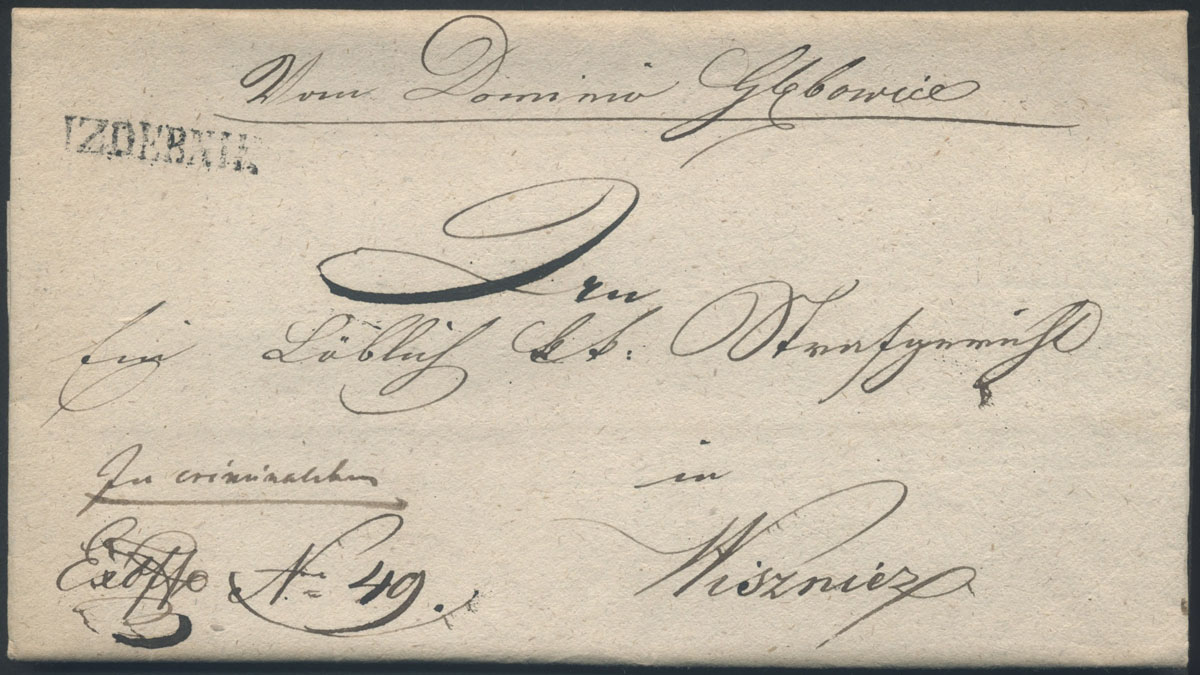 Vom Dominio Głębowice
IZDEBNIK
An
Ein Löblich kk: Strafgericht
In criminalibus
in
Exoffo No 49.
Wisznicz